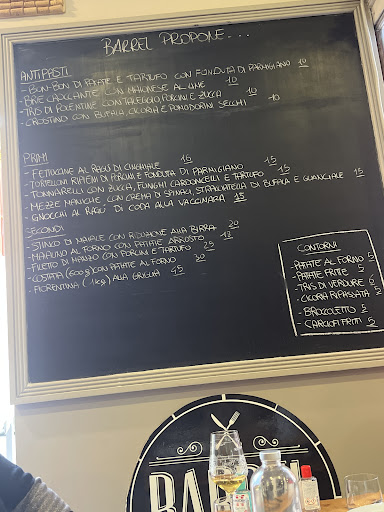 BARREL PROPONE...
ANTIPASTI
- BON-BON DI PATATE E TARTUFO CON FONDUTA DI PARMIGIANO 10
- BRIE CROCCANTE CON MAIONESE AL LIME 10
- TRIS DI POLENTINE CON TALEGGIO, PORCINI E ZUCCA 10
- CROSTINO CON BUFALA CICORIA E POMODORINI SECCHI 10
PRIMI
- FETTUCINE AL RAGÙ DI CINGHIALE 15
- TORTELLONI RIPIENI DI PORCINI E FONDUTA DI PARMIGIANO 15
- TONNARELLI CON ZUCCA, FUNGHI CARDONCELLI E TARTUFO 15
- MEZZE MANICHE CON CREMA DI SPINACI, STRACCIATELLA DI BUFALA E GUANCIALE 15
- GNOCCHI AL RAGÙ DI CODA ALLA VACCINARA 15
SECONDI
- STINCO DI MAIALE CON RIDUZIONE ALLA BIRRA 20
- MAIALINO AL FORNO CON PATATE ARROSTO 18
- FILETTO DI MANZO CON PORCINI E TARTUFO 25
- COSTATA (600g) CON PATATE AL FORNO 30
- FIORENTINA (1kg) ALLA GRIGLIA 45
CONTORNI
- PATATE AL FORNO 5
- PATATE FRITTE 5
- TRIS DI VERDURE 6
- CICORIA RIPASSATA 5
- BROCCOLETTO 5
- CARCIOFI FRITTI 5